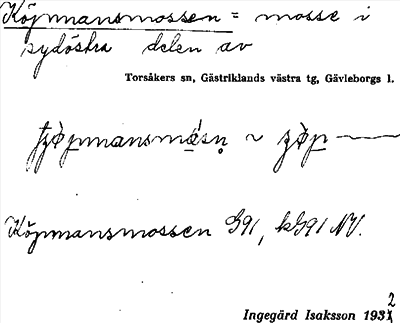 Köpmansmossen = mosse i
sydöstra delen av
Torsåkers sn, Gästriklands västra tg, Gävleborgs l.
Köpmansmossen G91, kG91 NV.
Ingegärd Isaksson 1932